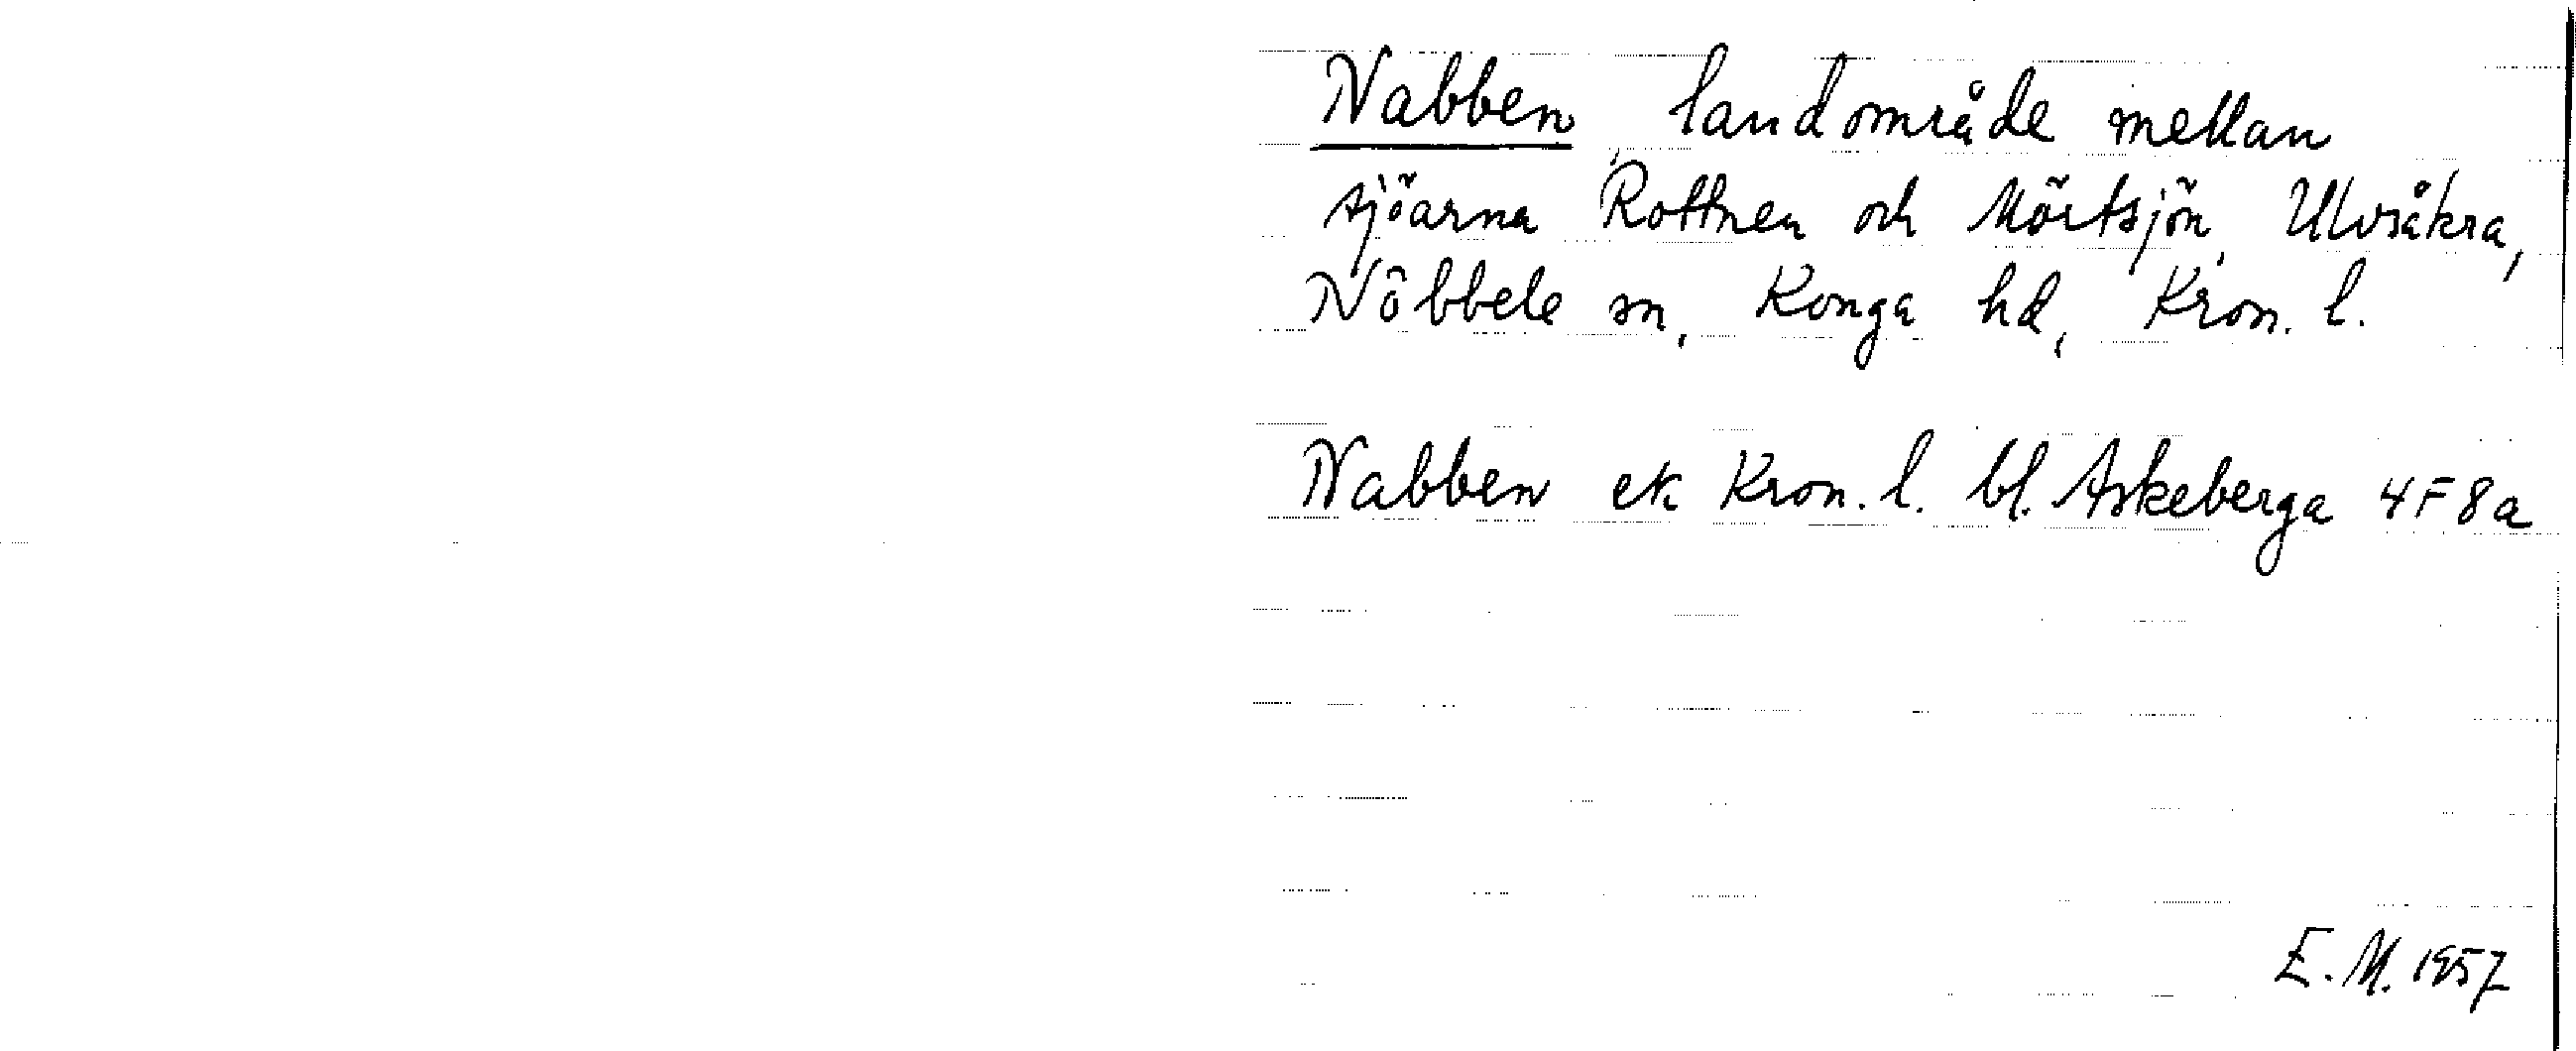 Nabben, landområde mellan
sjöarna Rottnen och Mörtsjön, Ulvsåkra,
Nöbbele sn, Konga hd, Kron. l.
Nabben ek Kron. l. bl. Askeberga 4F8a
E. M. 1957